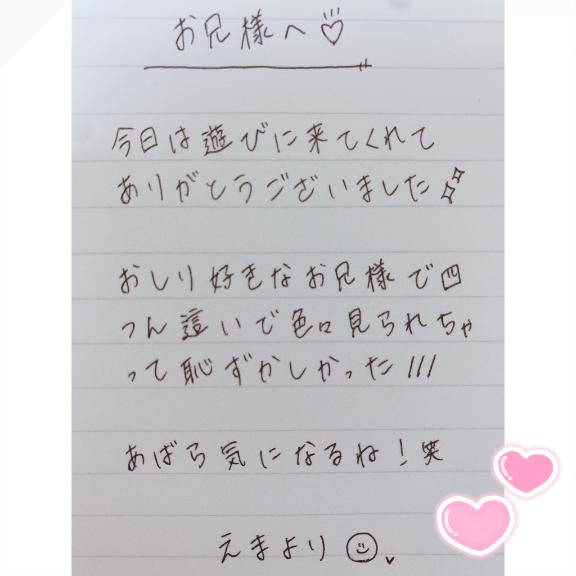 お兄様へ♡
今日は遊びに来てくれて
ありがとうございました
おしり好きなお兄様で四
つん這いで色々見られちゃ
って恥ずかしかった///
あばら気になるね！笑
えまより